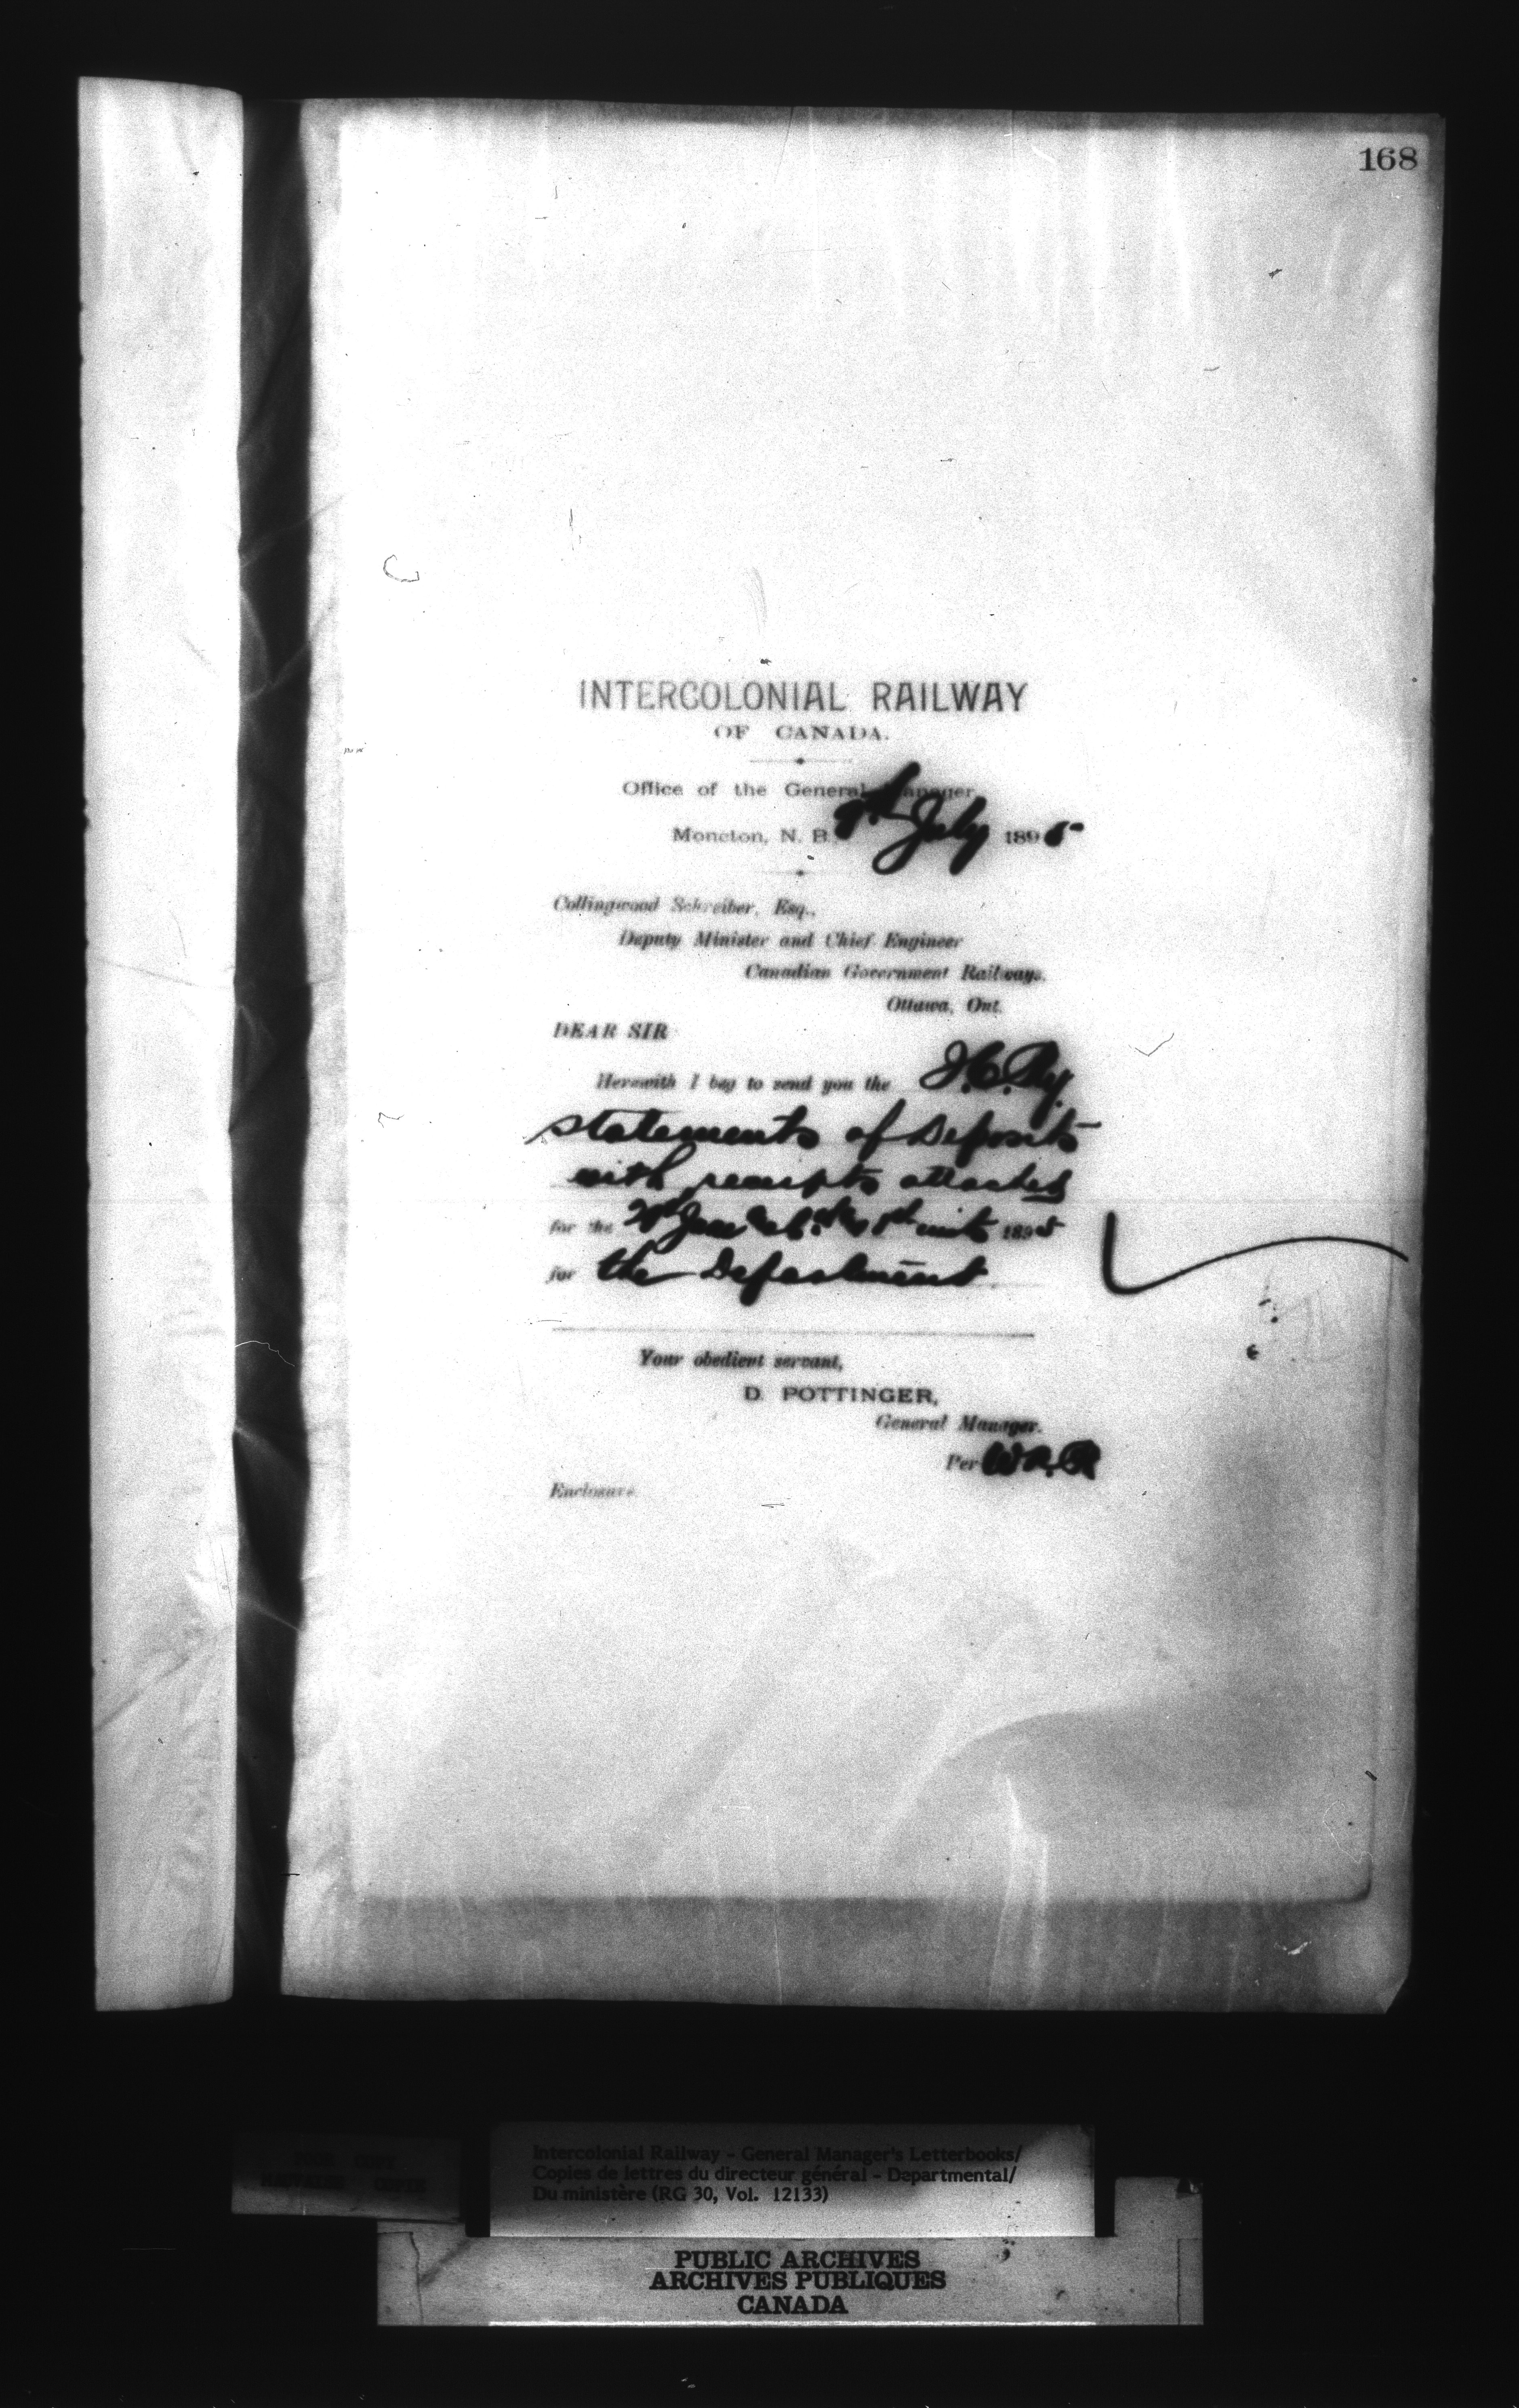 168
INTERCOLONIAL RAILWAY
OF CANADA.
Office of the General Manager
Moncton, N. B. 8th July 1895
Collingwood Schreiber, Esq.,
Deputy Minister and Chief Engineer
Canadian Government Railways.
Ottawa, Ont.
DEAR SIR
Herewith I beg to send you the I.C.Ry.
statements of Deposits
with receipts attached
for the June 1895
for the Department
Your obedient servant,
D. POTTINGER,
General Manager.
Per W.R.R
Enclosure.
Intercolonial Railway - General Manager's Letterbooks/
Copies de lettres du directeur général - Departmental/
Du ministère (RG 30, Vol. 12133)
PUBLIC ARCHIVES
ARCHIVES PUBLIQUES
CANADA